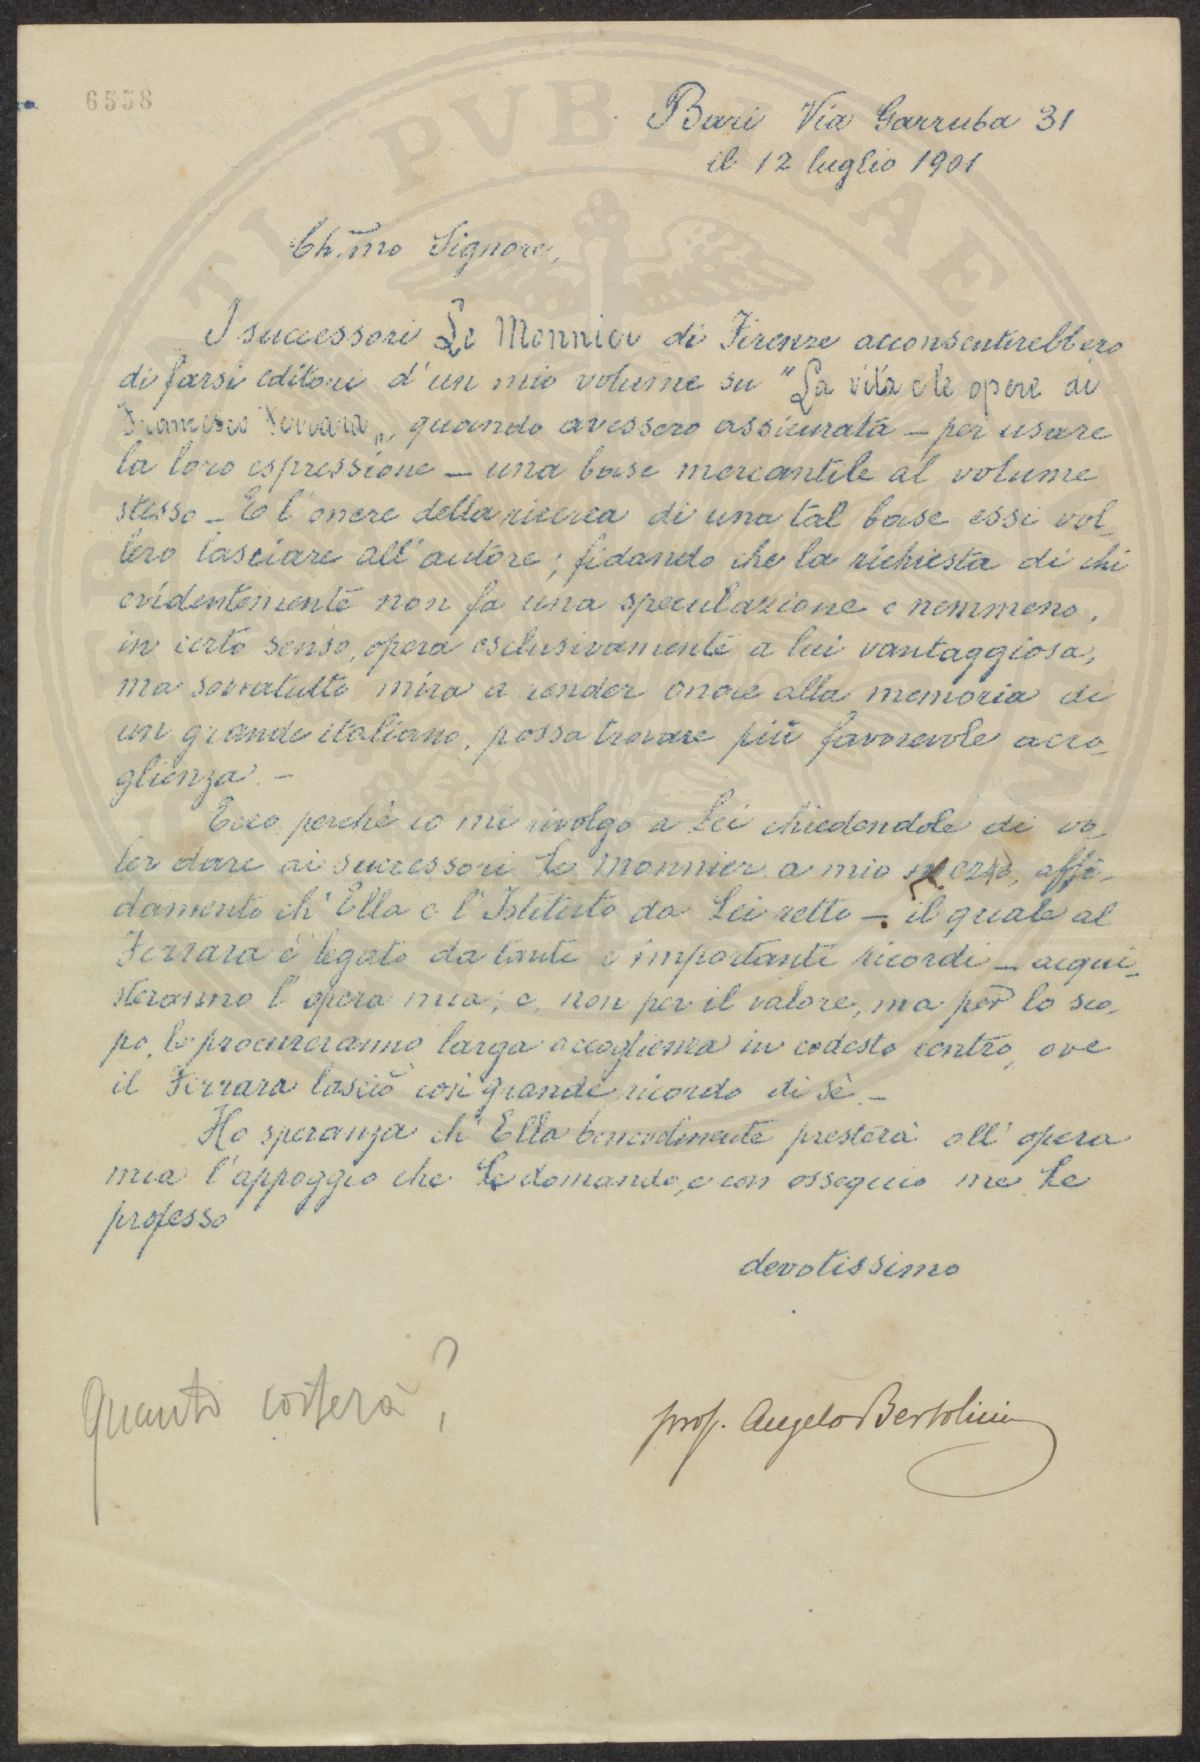 6558
Bari Via Garruba 31
il 12 luglio 1901
Ch.mo Signore,
I successori Le Monnier di Firenze acconsentirebbero
di farsi editori d'un mio volume su "La vita e le opere di
Francesco Ferrara„, quando avessero assicurata — per usare
la loro espressione — una base mercantile al volume
stesso — E l'onere della ricerca di una tal base essi vol-
lero lasciare all'autore; fidando che la richiesta di chi
evidentemente non fa una speculazione e nemmeno,
in certo senso, opera esclusivamente a lui vantaggiosa,
ma sovratutto mira a render onore alla memoria di
un grande italiano, possa trovare più favorevole acco-
glienza. —
Ecco perchè io mi rivolgo a Lei chiedendole di vo-
ler dare ai successori Le Monnier a mio mezzo, affi-
damento ch'Ella e l'Istituto da Lei retto — il quale al
Ferrara è legato da tanti e importanti ricordi — acqui-
steranno l'opera mia; e, non per il valore, ma per lo sco-
po, le procureranno larga accoglienza in codesto centro, ove
il Ferrara lasciò così grande ricordo di sè. —
Ho speranza ch'Ella benevolmente presterà all'opera
mia l'appoggio che Le domando, e con ossequio me Le
professo
devotissimo
Quanto costerà?
prof. Angelo Bertolini